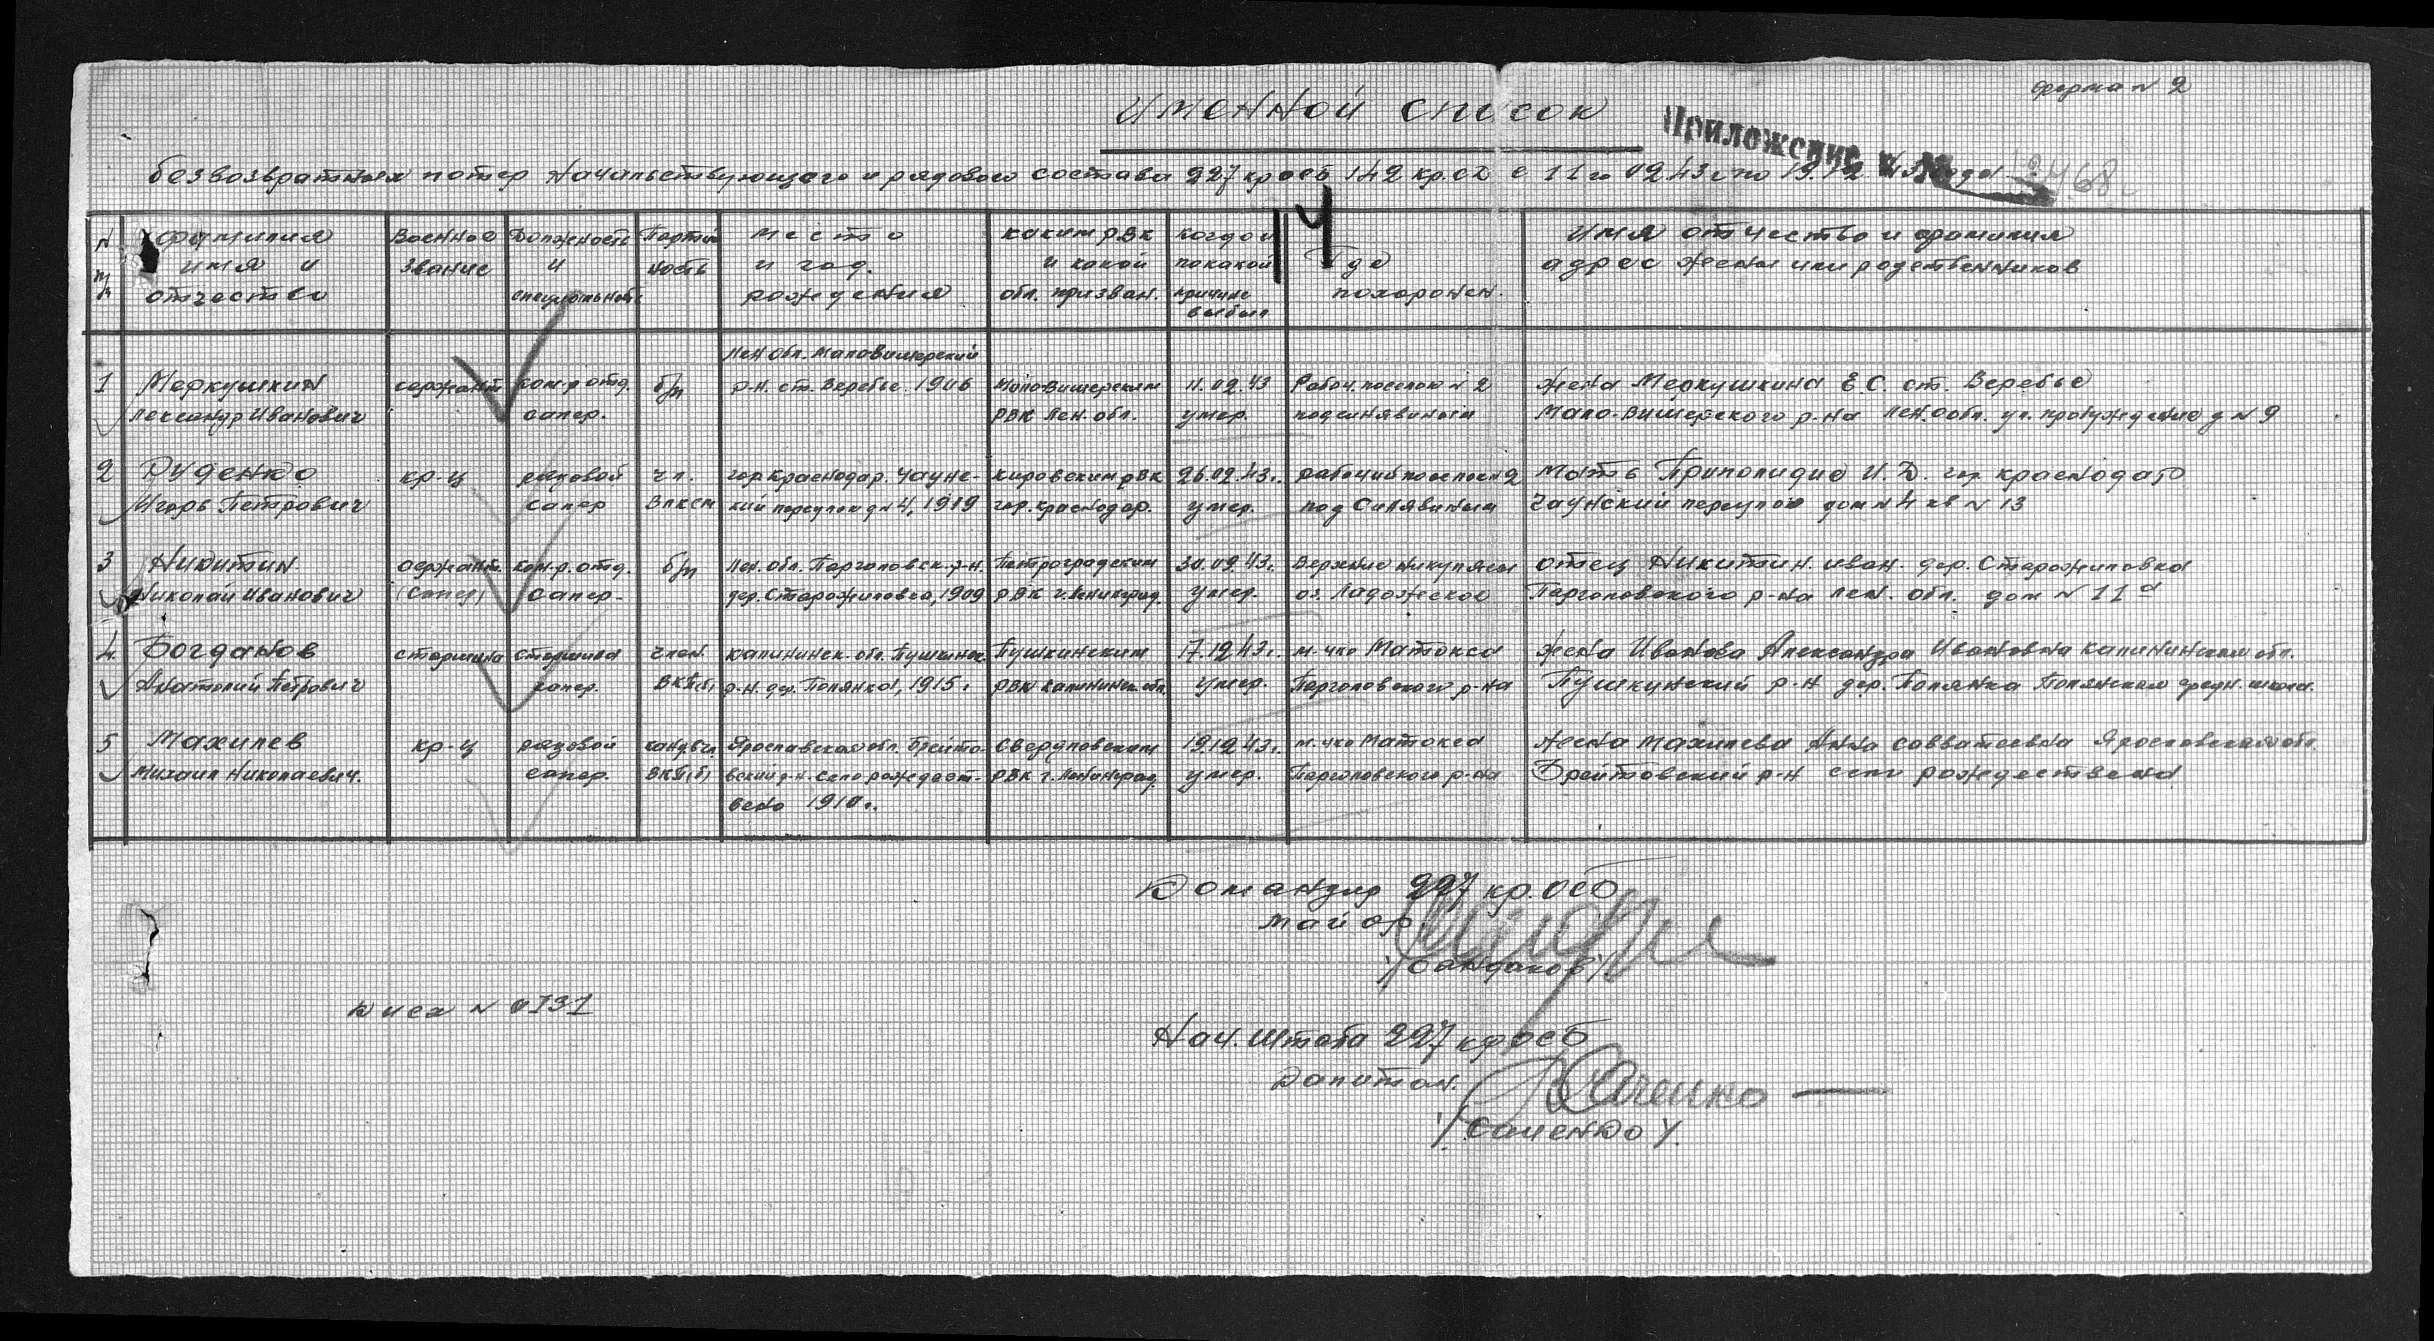 форма N 2
Именной список
Приложение к №
безвозвратных потер начальствующего и рядового состава 227 кр осб 142 кр.сд с 11го 02 43г по 19.12
468
14
N п/п
Фамилия имя и отчество
Военное звание
Должность и специальность
Партийность
Место и год. рождения
каким РВК и какой обл. призван.
когда и по какой причине выбыл
Где похоронен.
Имя отчество и фамилия адрес жены или родственников
1 Меркушкин сержант ком-р отд. б/п Лен обл. Маловишерский
Александр Иванович сапер. р-н. ст. Веребье. 1906 Маловишерским РВК Лен. обл. 11.02.43 умер. Рабоч. поселок N 2 под Синявиным
жена Меркушкина Е.С. ст. Веребье
Мало-Вишерского р-на Лен. обл. ул. д N 9
2 Руденко кр-ц рядовой чл. гор Краснодар. Чауне- Кировским РВК 26.02.43г. рабочий поселок 2 Мать И.Д. гор. Краснодар
Игорь Петрович сапер ВЛКСМ кий переулок д N 4, 1919 гор. Краснодар. умер. под Синявиным Чаунский переулок дом N 4 кв N 13
3 Никитин сержант. ком-р. отд. б/п Лен. обл. Парголовск. р-н. Петроградским 30.09.43г. Верхние Никулясы отец Никитин. Иван. дер. Старожиловка
Николай Иванович (сапер) сапер. дер. Старожиловка, 1909 РВК г. Ленинград. умер. оз. Ладожское Парголовского р-на Лен. обл. дом N 11а
4 Богданов старшина старшина член. Калининск. обл. Пушкинск. Пушкинским 17.12.43г. м-чко Матокса жена Иванова Александра Ивановна Калининская обл.
Анатолий Петрович сапер. ВКП(б) р-н. дер. Полянка, 1915г. РВК Калининск. обл. умер. Парголовского р-на Пушкинский р-н дер. Полянка Полянская средн. школа.
5 Махилев кр-ц рядовой кандидат Ярославская обл. Брейто- Свердловским 19.12.43г. м-чко Матокса жена Махилева Анна Савватеевна Ярославская обл.
Михаил Николаевич. сапер. ВКП(б) вский р-н. село рождест- РВК г. Ленинград. умер. Парголовского р-на Брейтовский р-н село рождествено
вено 1910г.
Командир 227 кр. осб
майор
/Сандаков/
Иск N 0731
Нач. штаба 227 кр осб
Капитан. Саченко
/Саченко/.